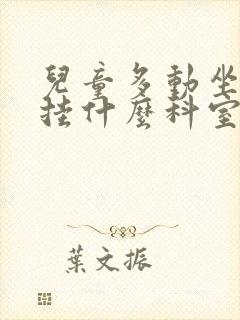 兒童多動坐
挂什麼科室
葉文振